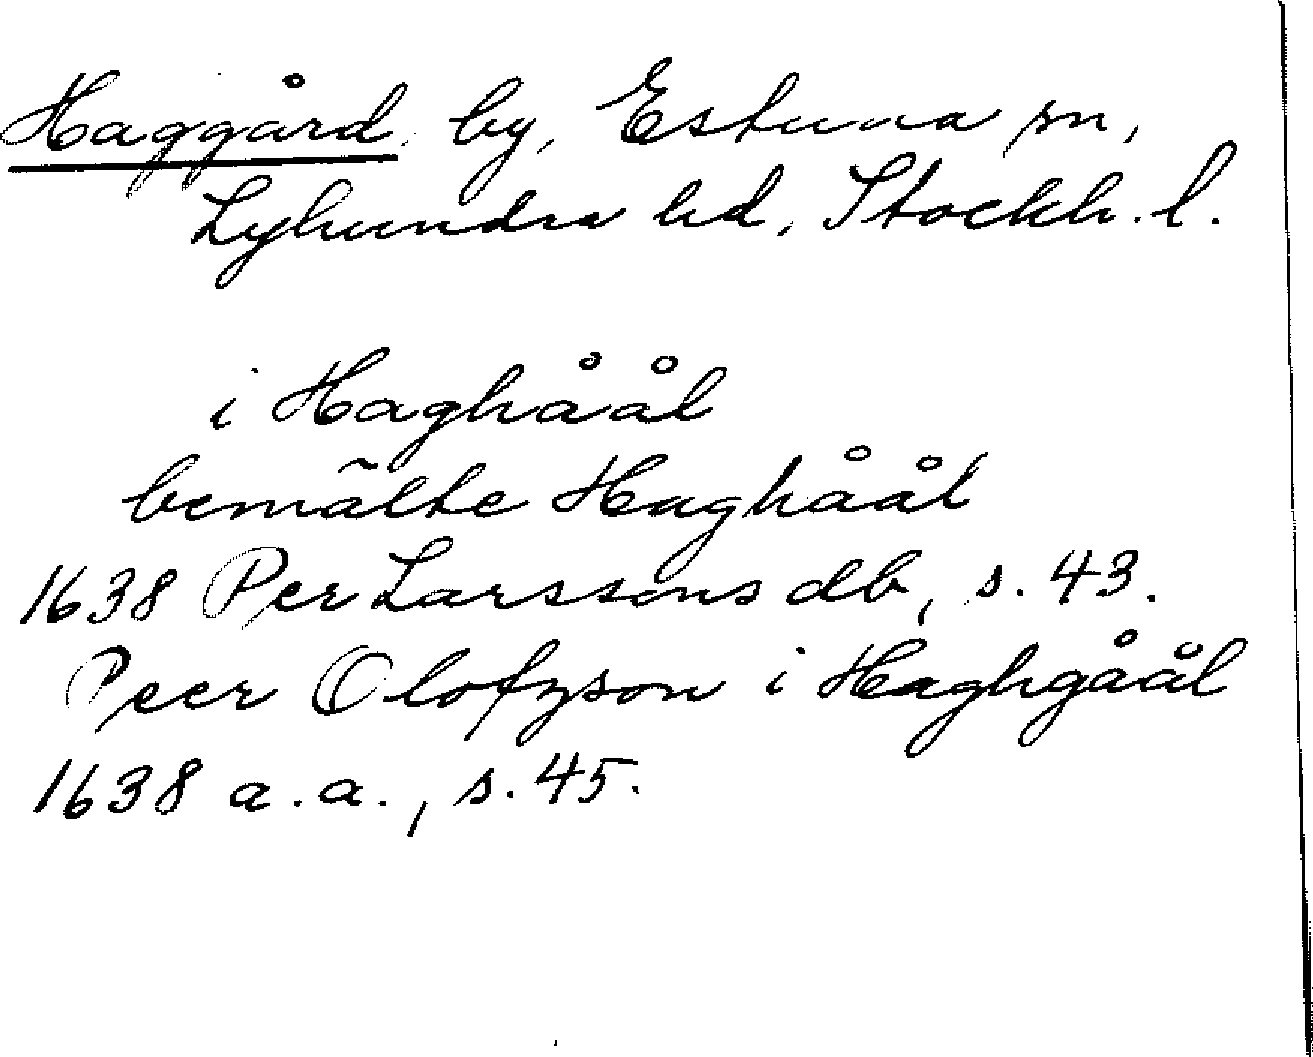 Haggård, by, Estuna sn,
Lyhundra hd, Stockh. l.
i Haghåål
bemälte Haghåål
1638 Per Larssons db, s. 43.
Peer Olofzson i Haghgåål
1638 a.a., s. 45.